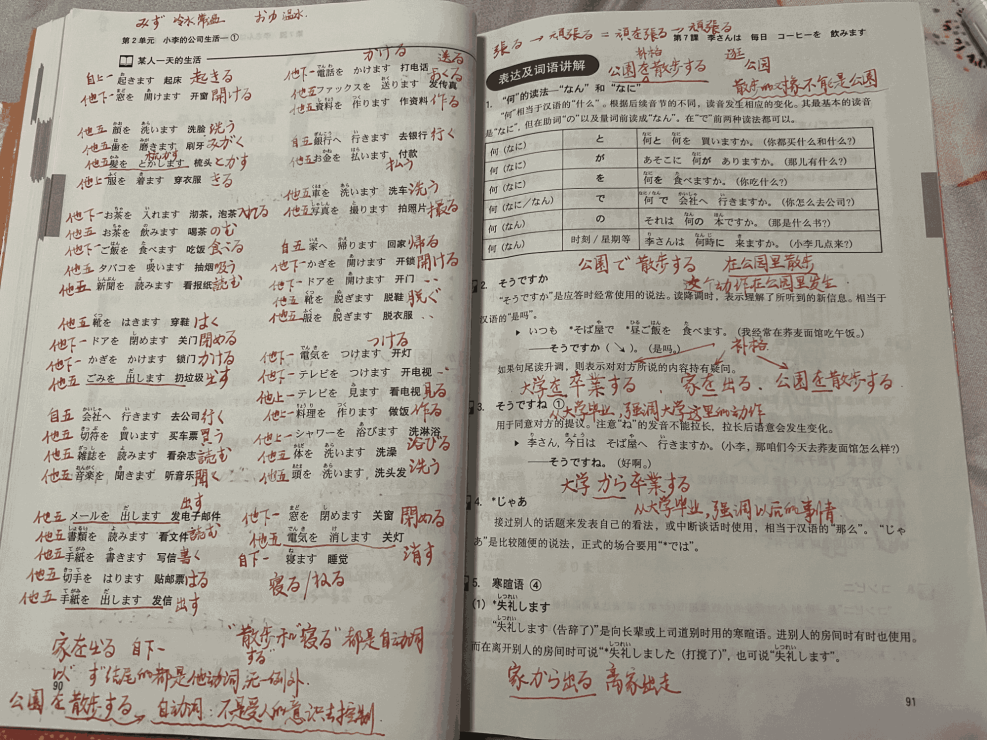 みず 冷水常温 おゆ 温水.
第2单元 小李的公司生活—①
某人一天的生活
自上一 起きます 起床 起きる
他下一 窓を 開けます 开窗 開ける
他五 顔を 洗います 洗脸 洗う
他五 歯を 磨きます 刷牙 みがく
他五 髪を とかします 梳头 とかす
他上一 服を 着ます 穿衣服 きる
他下一 お茶を 入れます 沏茶,泡茶 入れる
他五 お茶を 飲みます 喝茶 のむ
他下一 ご飯を 食べます 吃饭 食べる
他五 タバコを 吸います 抽烟 吸う
他五 新聞を 読みます 看报纸 読む
他五 靴を はきます 穿鞋 はく
他下一 ドアを 閉めます 关门 閉める
他下一 かぎを かけます 锁门 かける
他五 ごみを 出します 扔垃圾 出す
自五 会社へ 行きます 去公司 行く
他五 切符を 買います 买车票 買う
他五 雑誌を 読みます 看杂志 読む
他五 音楽を 聞きます 听音乐 聞く
出す
他五 メールを 出します 发电子邮件
他五 書類を 読みます 看文件 読む
他五 手紙を 書きます 写信 書く
他五 切手を はります 贴邮票 はる
他五 手紙を 出します 发信 出す
かける 送る
他下一 電話を かけます 打电话
他五 ファックスを 送ります 发传真 おくる
他五 資料を 作ります 作资料 作る
自五 銀行へ 行きます 去银行 行く
他五 お金を 払います 付款
払う
他五 車を 洗います 洗车 洗う
他五 写真を 撮ります 拍照片 撮る
自五 家へ 帰ります 回家 帰る
他下一 かぎを 開けます 开锁 開ける
他下一 ドアを 開けます 开门
他五 靴を 脱ぎます 脱鞋 脱ぐ
他五 服を 脱ぎます 脱衣服
つける
他下一 電気を つけます 开灯
他下一 テレビを つけます 开电视
他上一 テレビを 見ます 看电视 見る
他五 料理を 作ります 做饭 作る
他上一 シャワーを 浴びます 洗淋浴 浴びる
他五 体を 洗います 洗澡
他五 頭を 洗います 洗头发 洗う
他下一 窓を 閉めます 关窗 閉める
他五 電気を 消します 关灯
消す
自下一 寝ます 睡觉
寝る/ねる
家を出る 自下一
"散歩する"和"寝る"都是自动词
以"す"结尾的都是他动词,无一例外.
公園を散歩する 自动词:不是受人的意识去控制.
90
張る → 頑張る = 頑を張る → 頑張る
第7課 李さんは 毎日 コーヒーを 飲みます
补格 逛
公園を散歩する 公园
散步的对象不能是公园
表达及词语讲解
1. "何"的读法—"なん"和"なに"
"何"相当于汉语的"什么"。根据后续音节的不同,读音发生相应的变化。其最基本的读音
是"なに",但在助词"の"以及量词前读成"なん"。在"で"前两种读法都可以。
何(なに) と 何と 何を 買いますか。(你都买什么和什么?)
何(なに) が あそこに 何が ありますか。(那儿有什么?)
何(なに) を 何を 食べますか。(你吃什么?)
何(なに/なん) で 何で 会社へ 行きますか。(你怎么去公司?)
何(なん) の それは 何の 本ですか。(那是什么书?)
何(なん) 时刻/星期等 李さんは 何時に 来ますか。(小李几点来?)
公園で散歩する 在公园里散步
这个动作在公园里发生.
2. そうですか
"そうですか"是应答时经常使用的说法。读降调时,表示理解了所听到的新信息。相当于
汉语的"是吗"。
▶ いつも *そば屋で *昼ご飯を 食べます。(我经常在荞麦面馆吃午饭。)
——そうですか(↘)。(是吗。) 补格
如果句尾读升调,则表示对对方所说的内容持有疑问。
大学を卒業する 家を出る. 公園を散歩する
3. そうですね ①
从大学毕业,强调大学这里的动作
用于同意对方的提议。注意"ね"的发音不能拉长,拉长后语意会发生变化。
▶ 李さん,今日は そば屋へ 行きますか。(小李,那咱们今天去荞麦面馆怎么样?)
——そうですね。(好啊。)
大学から卒業する
4. *じゃあ
从大学毕业,强调以后的事情
接过别人的话题来发表自己的看法,或中断谈话时使用,相当于汉语的"那么"。"じゃ
あ"是比较随便的说法,正式的场合要用"*では"。
5. 寒暄语 ④
(1)*失礼します
"失礼します(告辞了)"是向长辈或上司道别时用的寒暄语。进别人的房间时有时也使用。
而在离开别人的房间时可说"*失礼しました(打搅了)",也可说"失礼します"。
家から出る 离家出走
91